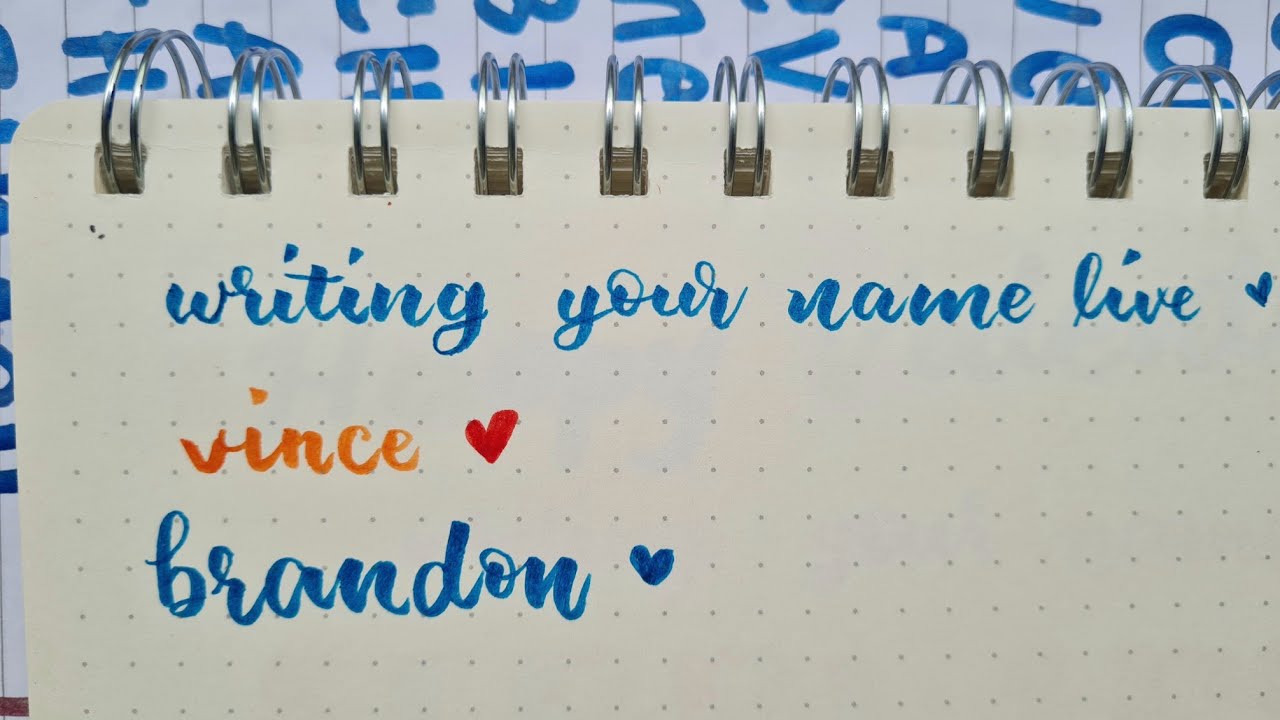 writing your name live
vince
brandon